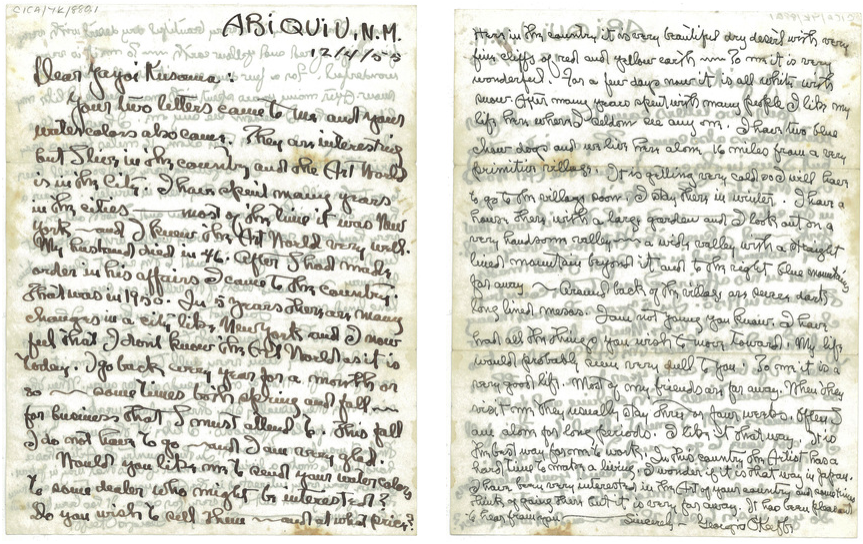 CICA/YK/8821
ABiQUiU, N.M.
12/4/55
Dear Yayoi Kusama:
Your two letters came to me and your
watercolors also came. They are interesting
but I live in the country and the Art World
is in the City. I have spent many years
in the cities — most of the time it was New
York — and I knew the Art World very well.
My husband died in 46. After I had made
order in his affairs I came to the country.
That was in 1950. In 5 years there are many
changes in a city like New York and I now
feel that I dont know the Art World as it is
today. I go back every year for a month or
so — sometimes both spring and fall —
for business that I must attend to. This fall
I do not have to go — and I am very glad.
Would you like me to send your watercolors
to some dealer who might be interested?
Do you wish to sell them — and at what price?
Here in the country it is very beautiful dry desert with very
fine cliffs of red and yellow earth — To me it is very
wonderful. For a few days now it is all white with
snow. After many years spent with many people I like my
life here where I seldom see any one. I have two blue
chow dogs and we live here alone 16 miles from a very
primitive village. It is getting very cold so I will have
to go to the village soon. I stay there in winter. I have a
house there with a large garden and I look out on a
very handsome valley — a wide valley with a straight
lined mountain beyond it and to the right blue mountains
far away — Around back of the village are dark
long lined mesas. I am not young you know. I have
had all the things you wish to move toward. My life
would probably seem very dull to you. To me it is a
very good life. Most of my friends are far away. When they
visit me they usually stay three or four weeks. Often I
am alone for long periods. I like it that way. It is
the best way for me to work. In this country the Artist has a
hard time to make a living. I wonder if it is that way in Japan.
I have been very interested in the Art of your country and sometimes
think of going there but it is very far away. It has been pleasant
to hear from you — Sincerely — Georgia O'Keeffe